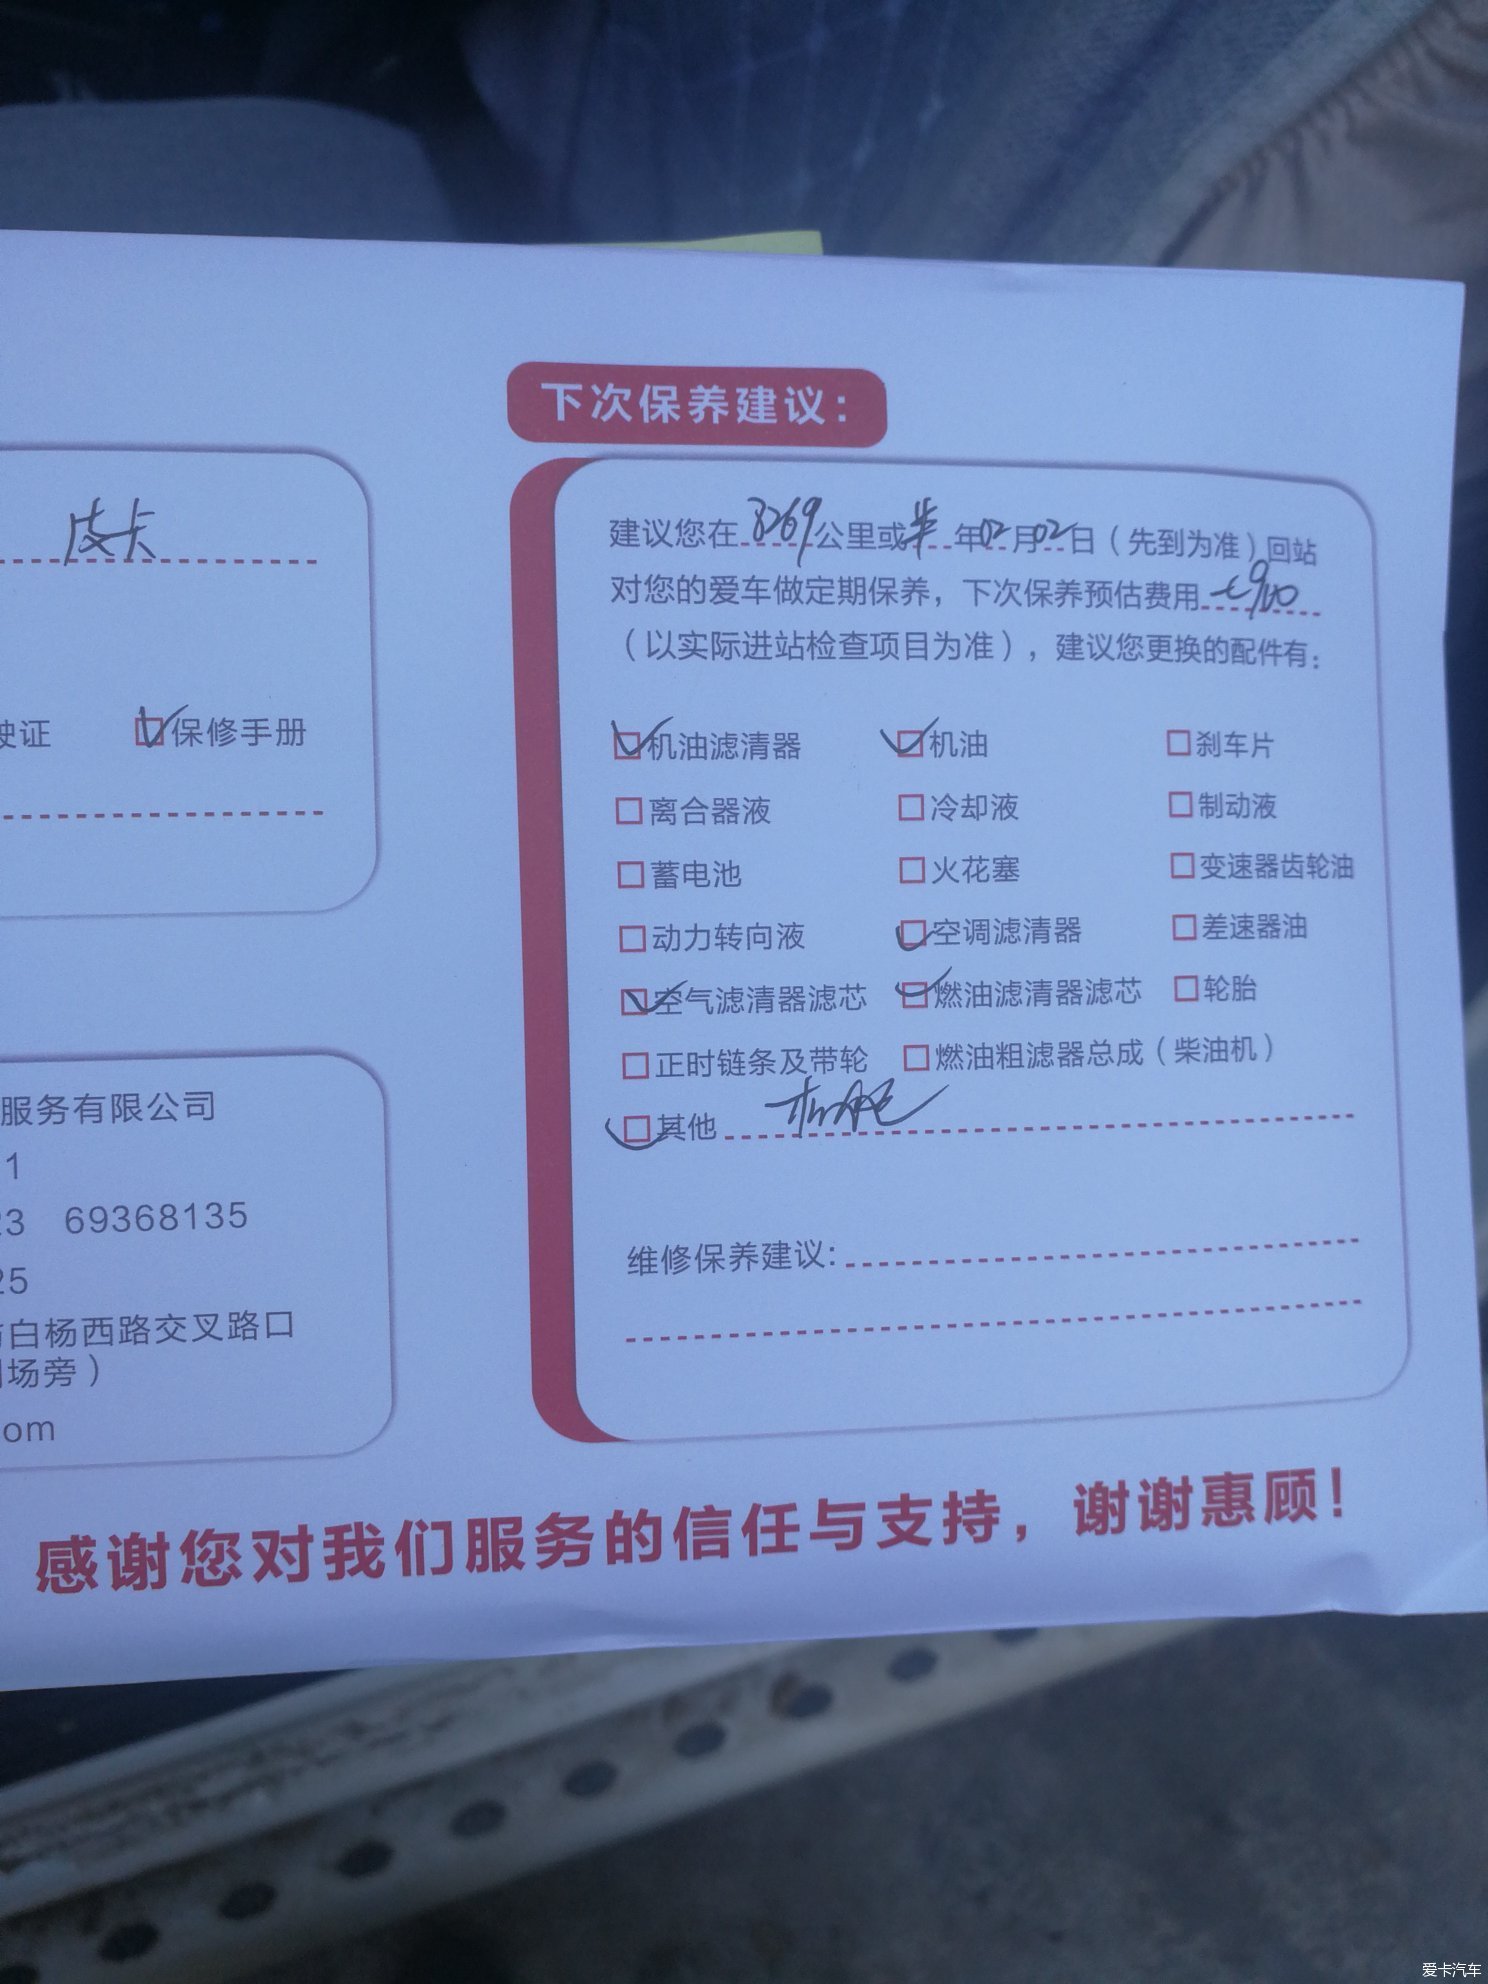 下次保养建议：
皮卡
建议您在8269公里或半年02月02日（先到为准）回站
对您的爱车做定期保养，下次保养预估费用
（以实际进站检查项目为准），建议您更换的配件有：
驶证 保修手册
机油滤清器 机油 刹车片
离合器液 冷却液 制动液
蓄电池 火花塞 变速器齿轮油
动力转向液 空调滤清器 差速器油
空气滤清器滤芯 燃油滤清器滤芯 轮胎
正时链条及带轮 燃油粗滤器总成（柴油机）
其他
维修保养建议：
服务有限公司
1
23 69368135
25
白杨西路交叉路口
场旁）
om
感谢您对我们服务的信任与支持，谢谢惠顾！
爱卡汽车